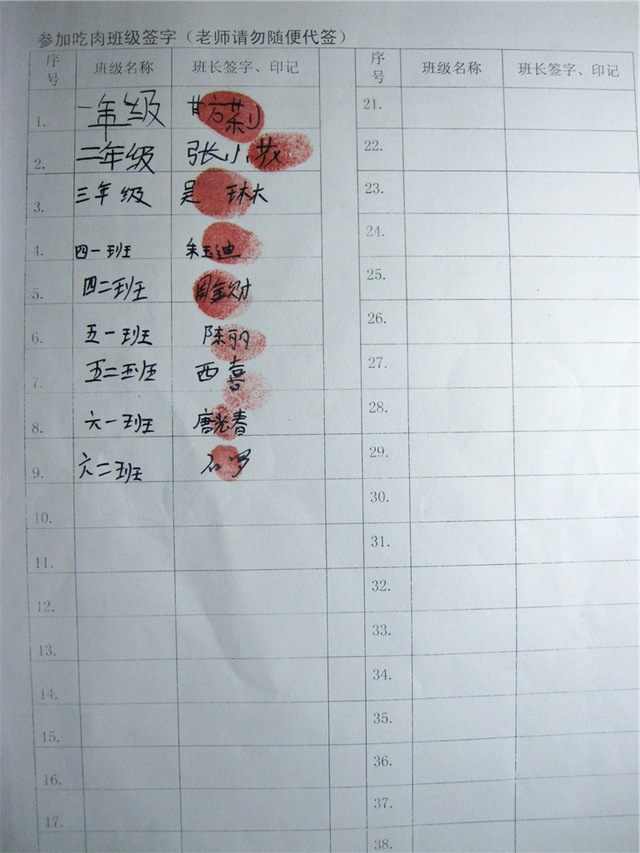 参加吃肉班级签字（老师请勿随便代签）
序号 班级名称 班长签字、印记 序号 班级名称 班长签字、印记
1. 一年级 21.
2. 二年级 张小 22.
3. 三年级 吴琳大 23.
4. 四一班 朱玉迪 24.
5. 四二班 周金财 25.
6. 五一班 陈丽 26.
7. 五二班 西喜 27.
8. 六一班 唐光春 28.
9. 六二班 石罗 29.
10. 30.
11. 31.
12. 32.
13. 33.
14. 34.
15. 35.
16. 36.
17. 37.
38.